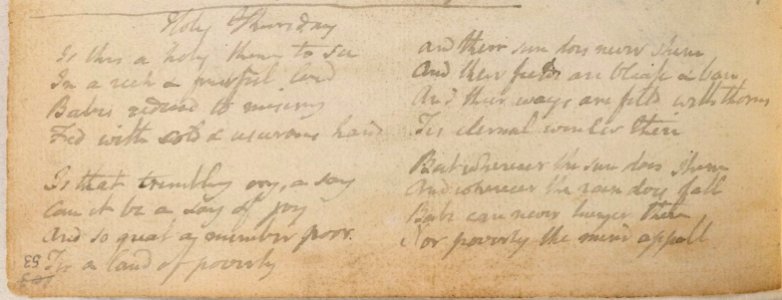 Holy Thursday
Is this a holy thing to see
In a rich & fruitful land
Babes reducd to misery
Fed with cold & usurous hand
Is that trembling cry, a song
Can it be a song of joy
And so great a number poor.
Tis a land of poverty
And their sun does never shine
And their fields are bleak & bare
And their ways are filld with thorns
Tis eternal winter there
But whereeer the sun does shine
And whereeer the rain does fall
Babe can never hunger there
Nor poverty the mind appall
53